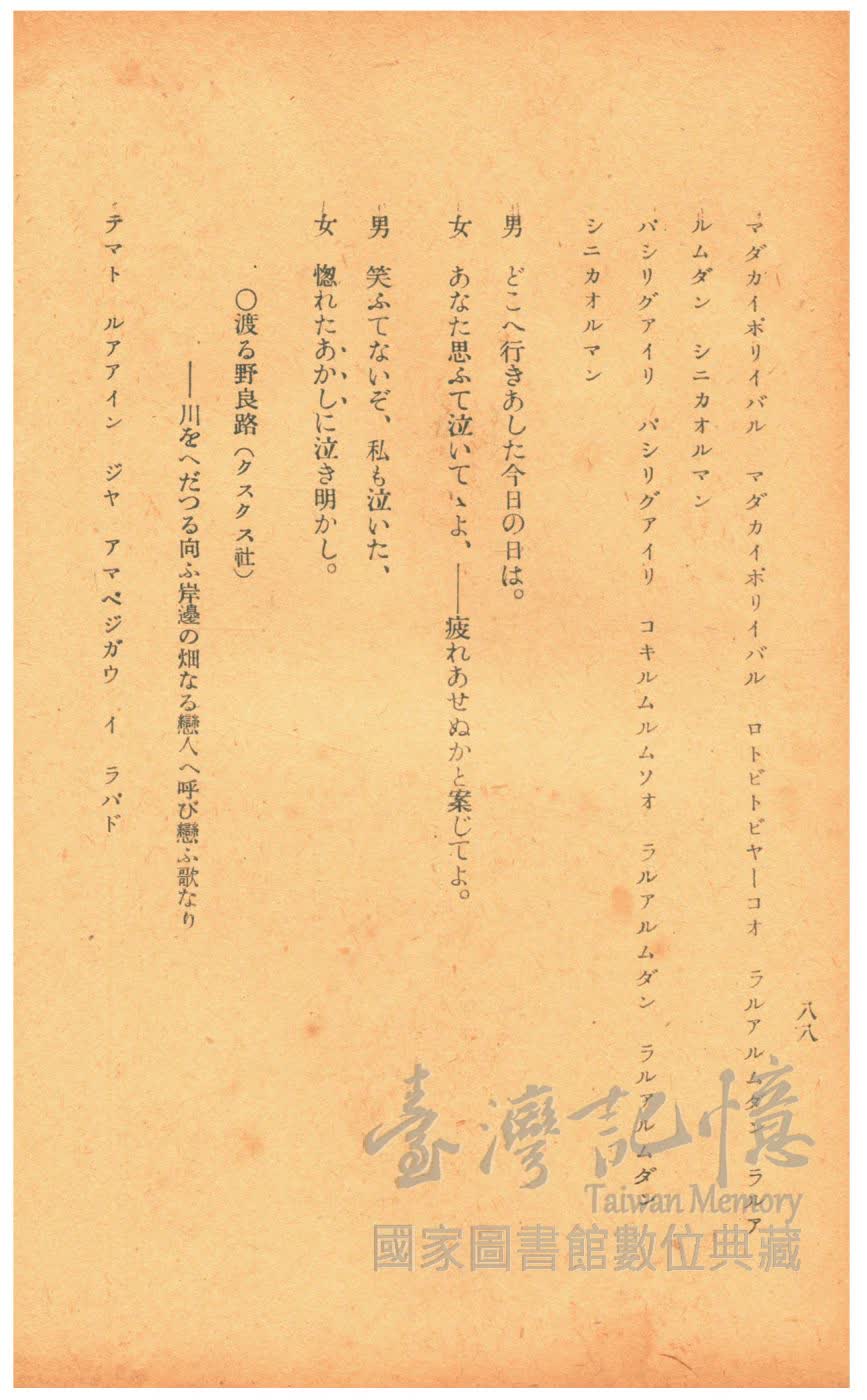 八八
マダカイポリイバル マダカイポリイバル ロトビトビヤーコオ ラルアルムダン ラルア
ルムダン シニカオルマン
パシリグアイリ パシリグアイリ コキルムルムソオ ラルアルムダン ラルアルムダン
シニカオルマン
男 どこへ行きあした今日の日は。
女 あなた思ふて泣いてゝよ、——疲れあせぬかと案じてよ。
男 笑ふてないぞ、私も泣いた、
女 惚れたあかしに泣き明かし。
○渡る野良路(クスクス社)
——川をへだつる向ふ岸邊の畑なる戀人へ呼び戀ふ歌なり
テマト ルアアイン ジヤ アマペジガウ イ ラパド
臺灣記憶
Taiwan Memory
國家圖書館數位典藏